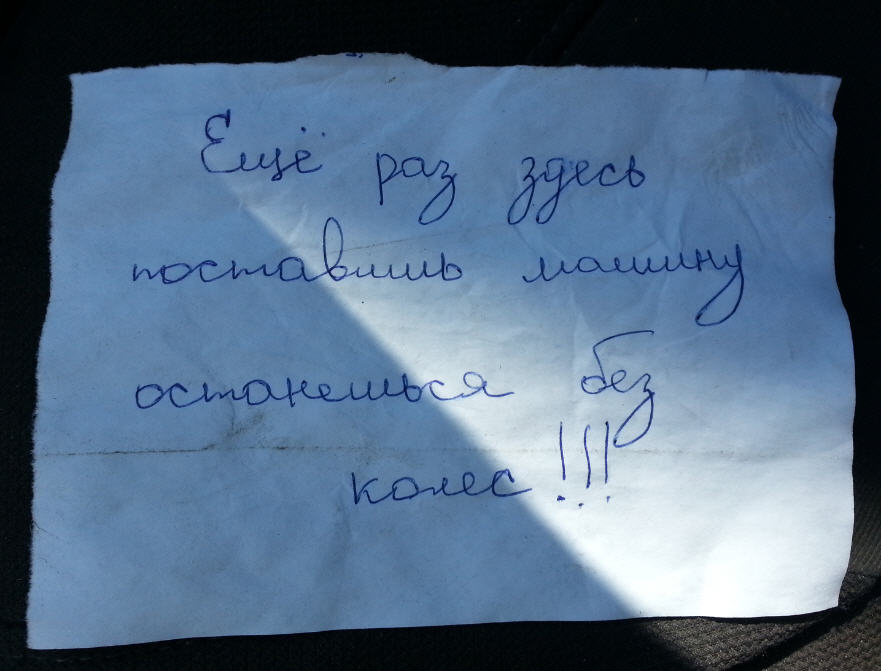 Ещё раз здесь
поставишь машину
останешься без
колес!!!